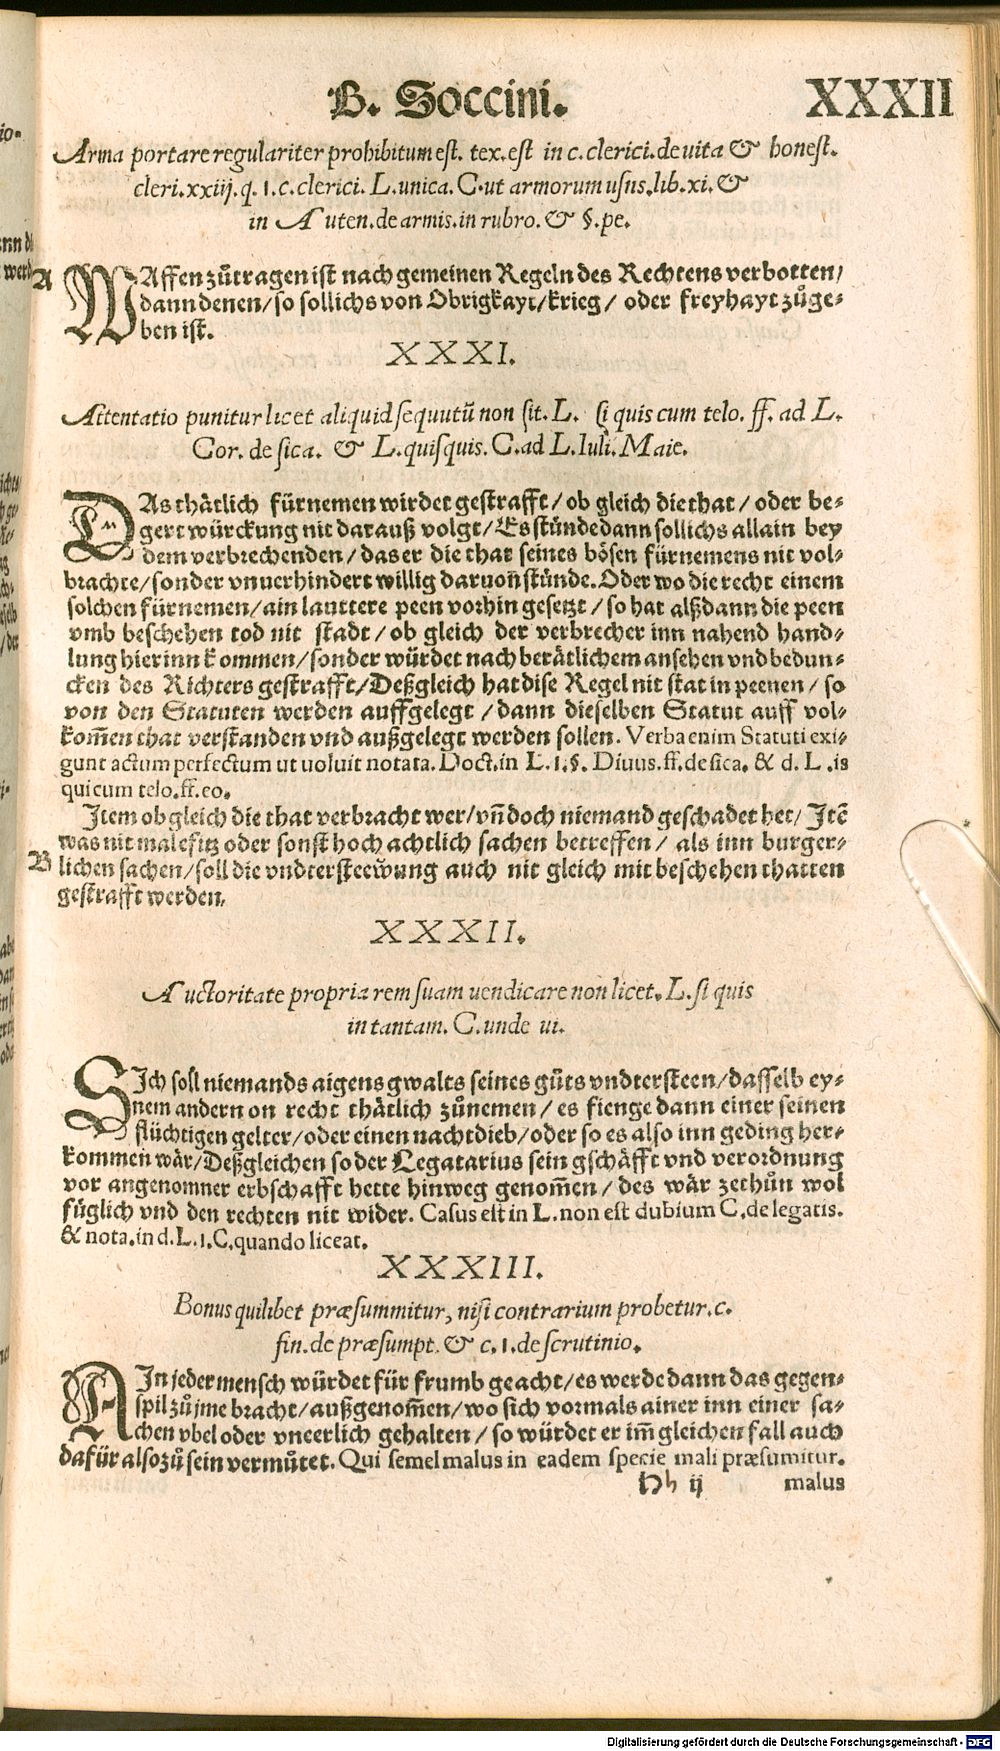 B. Soccini.
XXXII
Arma portare regulariter prohibitum est. tex. est in c. clerici. de uita & honest.
cleri. xxiij. q. 1. c. clerici. L. unica. C. ut armorum usus. lib. xi. &
in Auten. de armis. in rubro. & §. pe.
A
WAffen zůtragen ist nach gemeinen Regeln des Rechtens verbotten/
dann denen/ so sollichs von Obrigkayt/ krieg/ oder freyhayt zůge-
ben ist.
XXXI.
Attentatio punitur licet aliquid sequutũ non sit. L. si quis cum telo. ff. ad L.
Cor. de sica. & L. quisquis. C. ad L. Iuli. Maie.
DAs thätlich fürnemen wirdet gestrafft/ ob gleich die that/ oder be-
gert würckung nit darauß volgt/ Es stůnde dann sollichs allain bey
dem verbrechenden/ das er die that seines bösen fürnemens nit vol-
brachte/ sonder vnuerhindert willig daruon stünde. Oder wo die recht einem
solchen fürnemen/ ain lauttere peen vorhin gesetzt/ so hat alßdann die peen
vmb beschehen tod nit stadt/ ob gleich der verbrecher inn nahend hand-
lung hierinn kommen/ sonder würdet nach berätlichem ansehen vnd bedun-
cken des Richters gestrafft/ Deßgleich hat dise Regel nit stat in peenen/ so
von den Statuten werden auffgelegt/ dann dieselben Statut auff vol-
kom̃en that verstanden vnd außgelegt werden sollen. Verba enim Statuti exi-
gunt actum perfectum ut uoluit notata. Doct. in L. 1. §. Diuus. ff. de sica. & d. L. is
qui cum telo. ff. eo.
Item ob gleich die that verbracht wer/ vñ doch niemand geschadet het/ Itẽ
was nit malefitz oder sonst hoch achtlich sachen betreffen/ als inn burger-
B
lichen sachen/ soll die vndtersteewung auch nit gleich mit beschehen thatten
gestrafft werden.
XXXII.
Auctoritate propria rem suam uendicare non licet. L. si quis
in tantam. C. unde ui.
SIch soll niemands aigens gwalts seines gůts vndtersteen/ dasselb ey-
nem andern on recht thätlich zůnemen/ es fienge dann einer seinen
flüchtigen gelter/ oder einen nachtdieb/ oder so es also inn geding her-
kommen wär/ Deßgleichen so der Legatarius sein gschäfft vnd verordnung
vor angenomner erbschafft hette hinweg genom̃en/ des wär zethůn wol
füglich vnd den rechten nit wider. Casus est in L. non est dubium C. de legatis.
& nota. in d. L. 1. C. quando liceat.
XXXIII.
Bonus quilibet præsummitur, nisi contrarium probetur. c.
fin. de præsumpt. & c. 1. de scrutinio.
AIn jeder mensch würdet für frumb geacht/ es werde dann das gegen-
spil zů jme bracht/ außgenom̃en/ wo sich vormals ainer inn einer sa-
chen vbel oder vneerlich gehalten/ so würdet er im̃ gleichen fall auch
dafür also zů sein vermůtet. Qui semel malus in eadem specie mali præsumitur.
Hh ij
malus
Digitalisierung gefördert durch die Deutsche Forschungsgemeinschaft - DFG